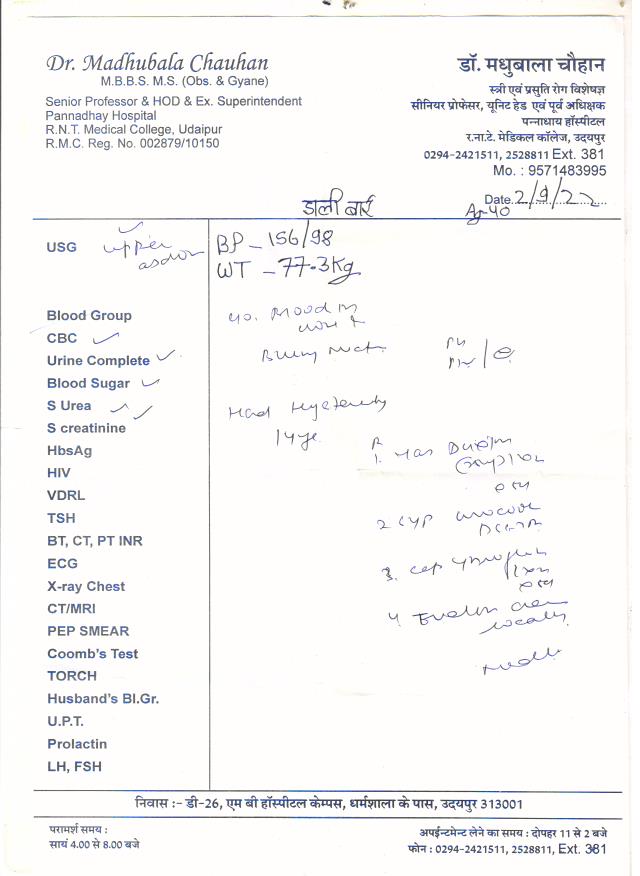 Dr. Madhubala Chauhan
M.B.B.S. M.S. (Obs. & Gyane)
Senior Professor & HOD & Ex. Superintendent
Pannadhay Hospital
R.N.T. Medical College, Udaipur
R.M.C. Reg. No. 002879/10150
डॉ. मधुबाला चौहान
स्त्री एवं प्रसुति रोग विशेषज्ञ
सीनियर प्रोफेसर, यूनिट हेड एवं पूर्व अधिक्षक
पन्नाधाय हॉस्पीटल
र.ना.टे. मेडिकल कॉलेज, उदयपुर
0294-2421511, 2528811 Ext. 381
Mo. : 9571483995
Date 2/9/22
डाली बाई
40
USG
upper
BP - 156/98
WT - 77.3Kg
Blood Group
CBC
Urine Complete
Blood Sugar
S Urea
S creatinine
Had
HbsAg
HIV
VDRL
TSH
BT, CT, PT INR
ECG
X-ray Chest
CT/MRI
PEP SMEAR
Coomb's Test
TORCH
Husband's Bl.Gr.
U.P.T.
Prolactin
LH, FSH
1.
2
3. cap
4.
locally
निवास :- डी-26, एम बी हॉस्पीटल केम्पस, धर्मशाला के पास, उदयपुर 313001
परामर्श समय :
सायं 4.00 से 8.00 बजे
अपॉईन्टमेन्ट लेने का समय : दोपहर 11 से 2 बजे
फोन : 0294-2421511, 2528811, Ext. 381